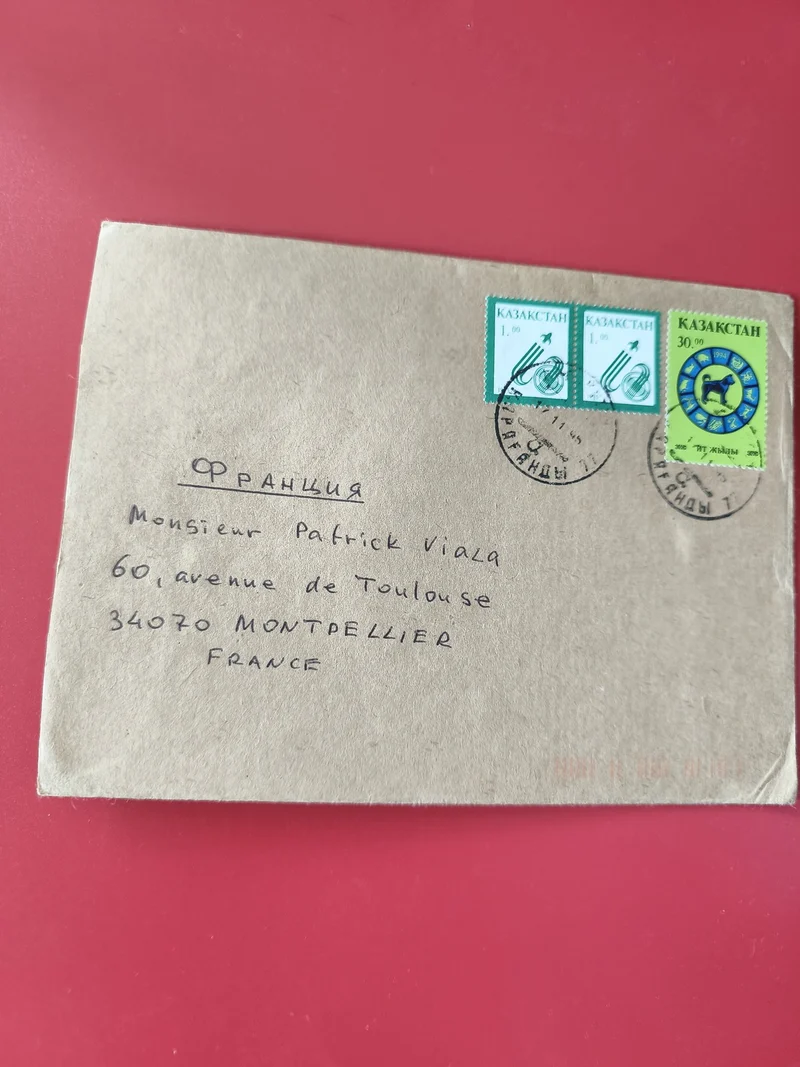 КАЗАКСТАН
1.00
КАЗАКСТАН
1.00
КАЗАКСТАН
30.00
1994
ит жылы
ҚАРАҒАНДЫ 77
17 11 95
ФРАНЦИЯ
Monsieur Patrick Viala
60, avenue de Toulouse
34070 MONTPELLIER
FRANCE